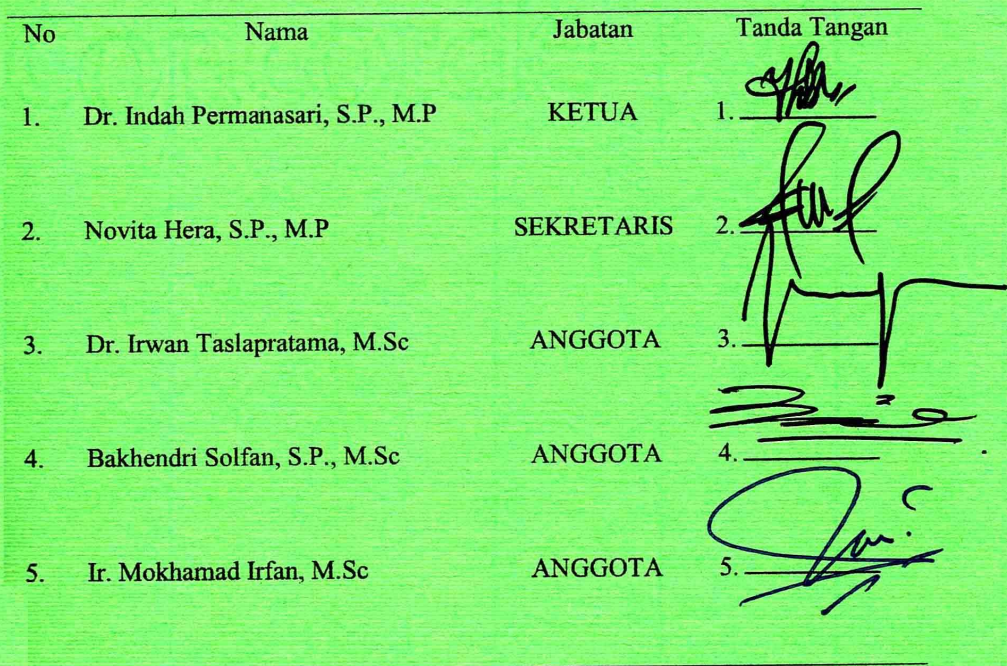 No Nama Jabatan Tanda Tangan
1. Dr. Indah Permanasari, S.P., M.P KETUA 1.
2. Novita Hera, S.P., M.P SEKRETARIS 2.
3. Dr. Irwan Taslapratama, M.Sc ANGGOTA 3.
4. Bakhendri Solfan, S.P., M.Sc ANGGOTA 4.
5. Ir. Mokhamad Irfan, M.Sc ANGGOTA 5.